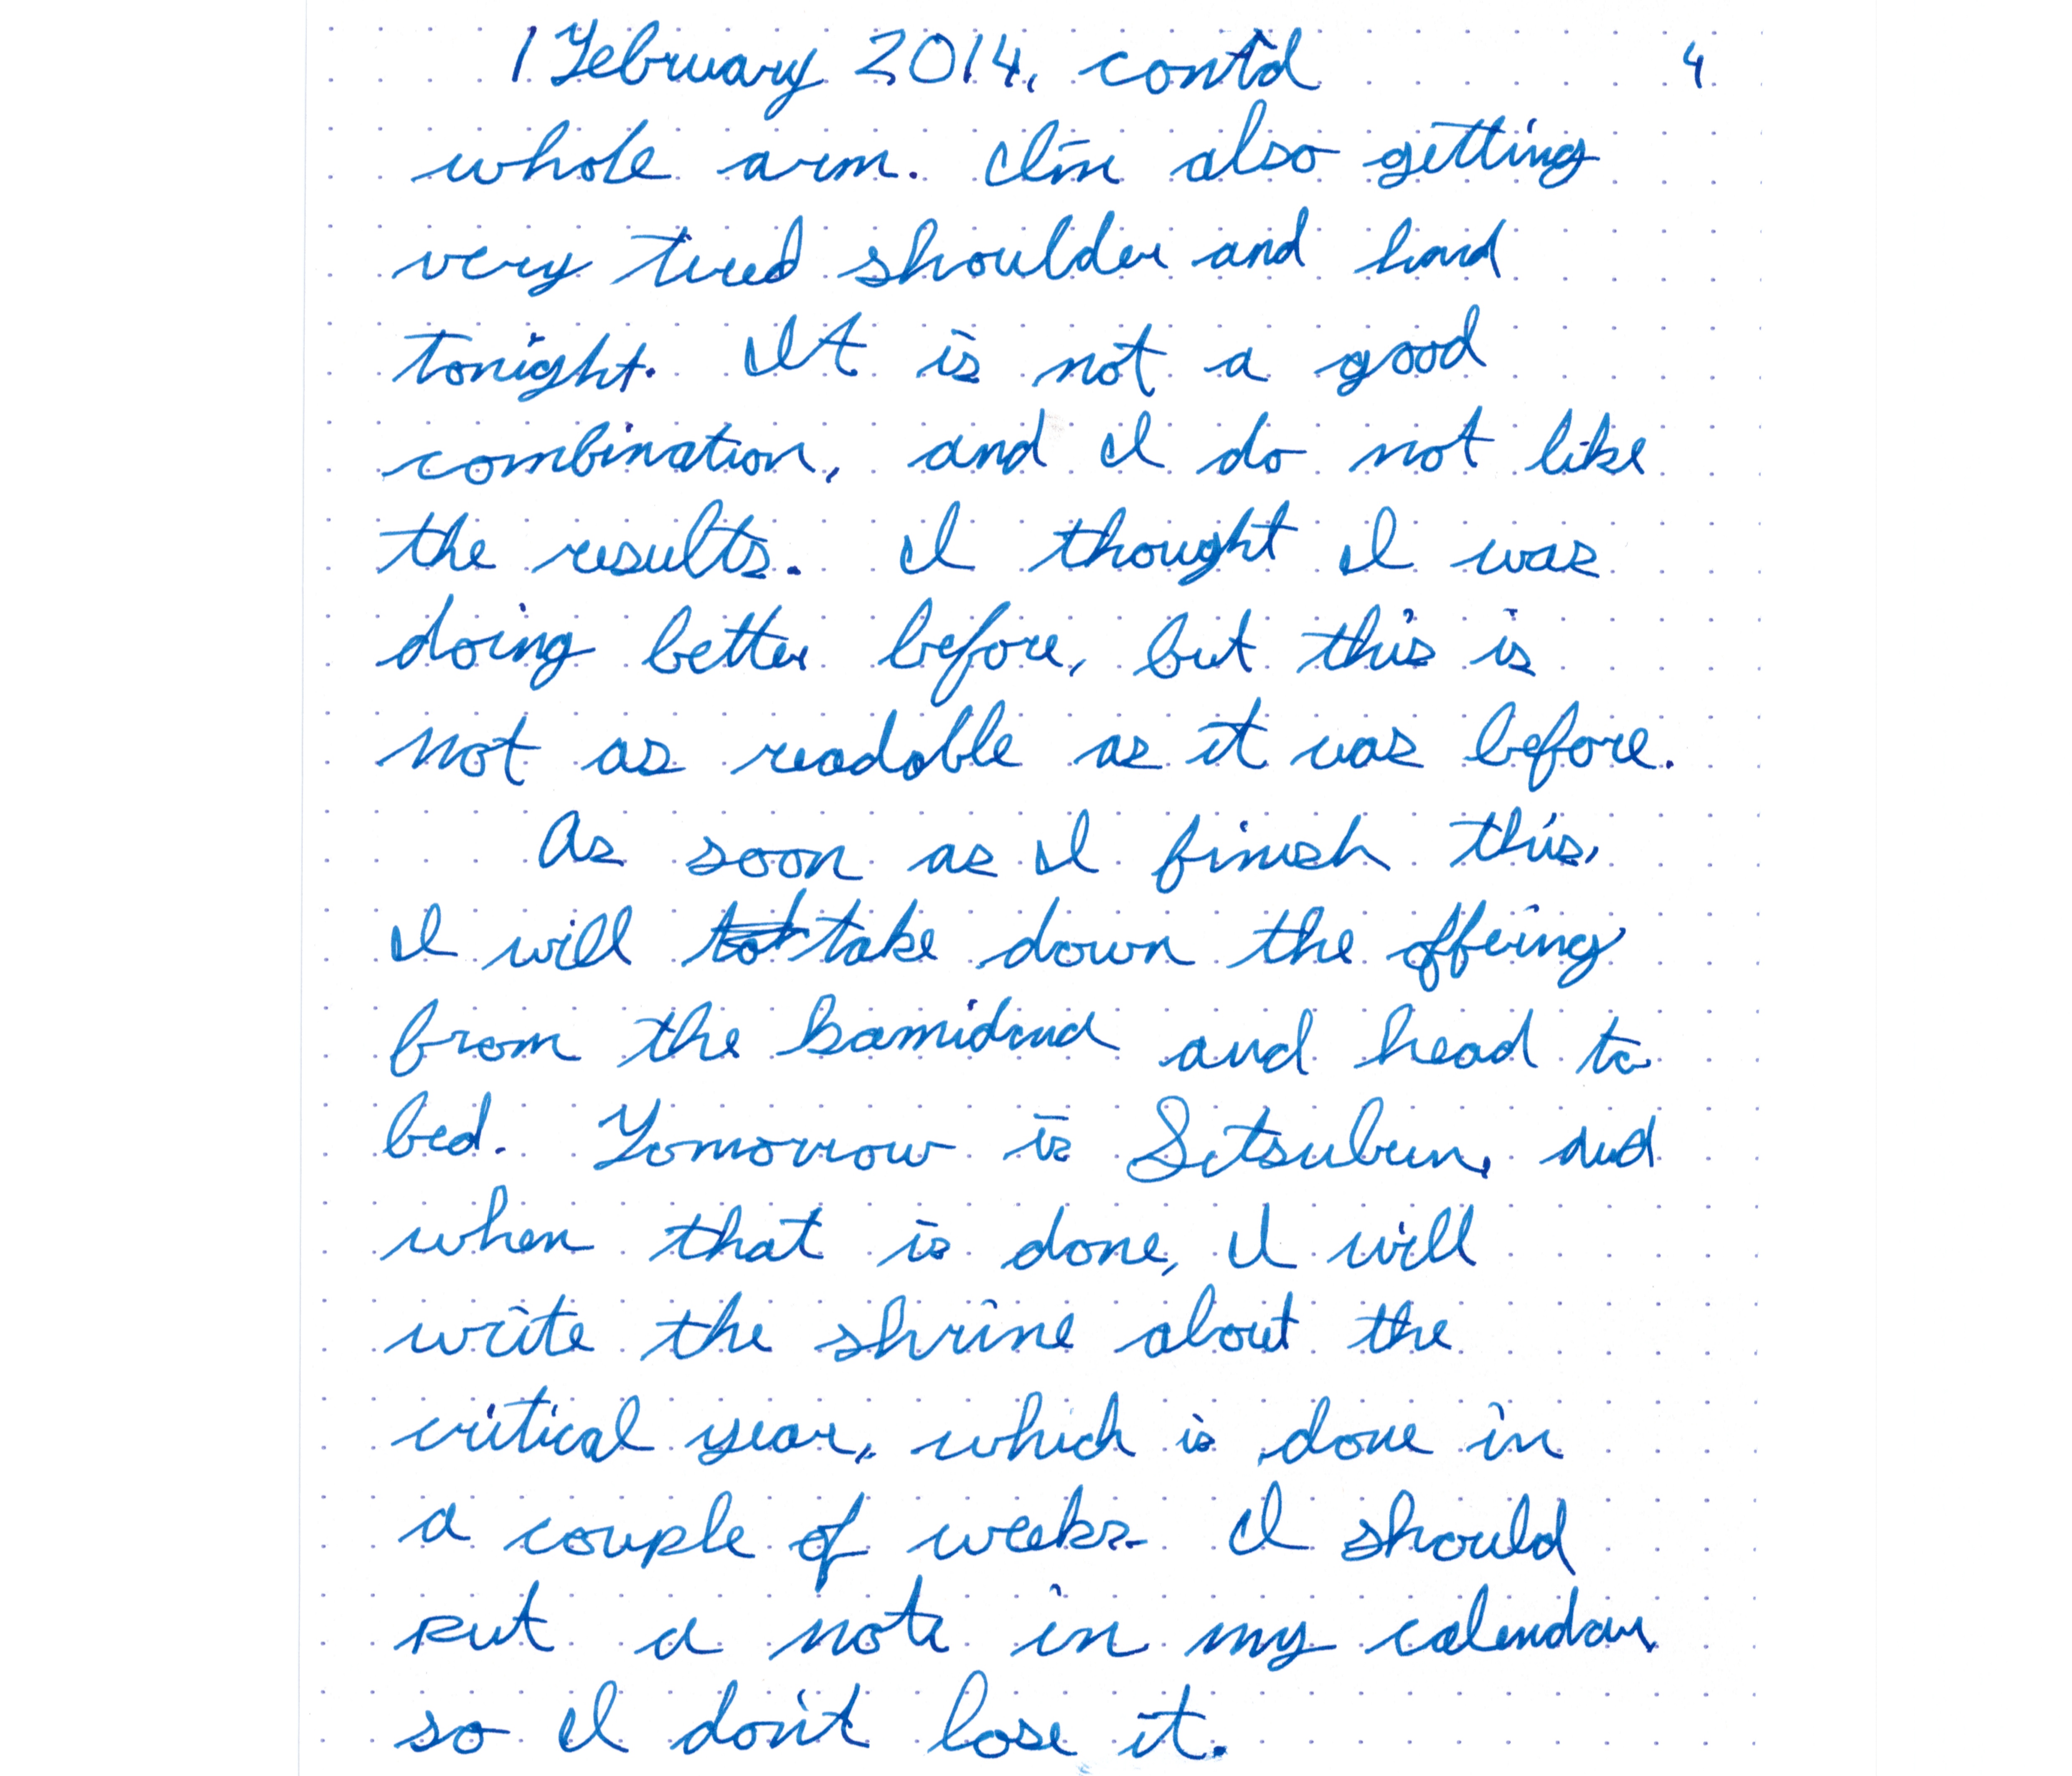 1 February 2014, cont'd 4
whole arm. I'm also getting
very tired shoulder and hand
tonight. It is not a good
combination, and I do not like
the results. I thought I was
doing better before, but this is
not as readable as it was before.
As soon as I finish this,
I will tot take down the offering
from the kamidana and head to
bed. Tomorrow is Setsubun, and
when that is done, I will
write the shrine about the
critical year, which is done in
a couple of weeks. I should
put a note in my calendar
so I don't lose it.